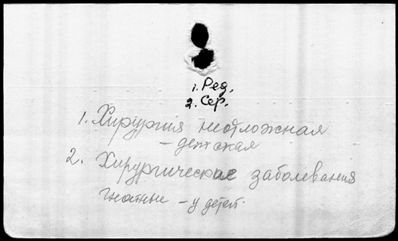 1. Ред.
2. Сер.
1. Хирургия неотложная
– детская
2. Хирургические заболевания
гнойные – у детей